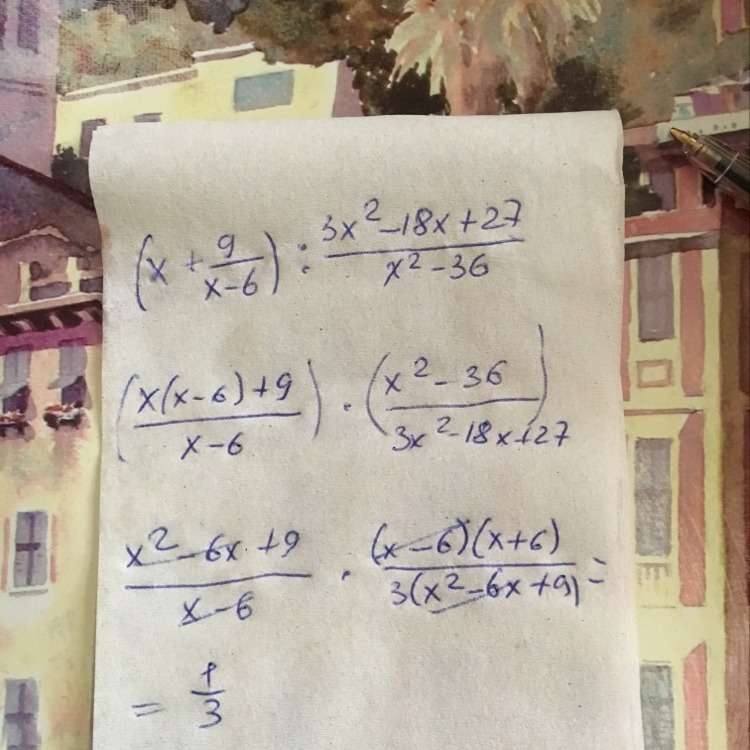 (x + 9/(x-6)) : (3x²-18x+27)/(x²-36)
((x(x-6)+9)/(x-6)) · ((x²-36)/(3x²-18x+27))
(x²-6x+9)/(x-6) · ((x-6)(x+6))/(3(x²-6x+9)) =
= 1/3